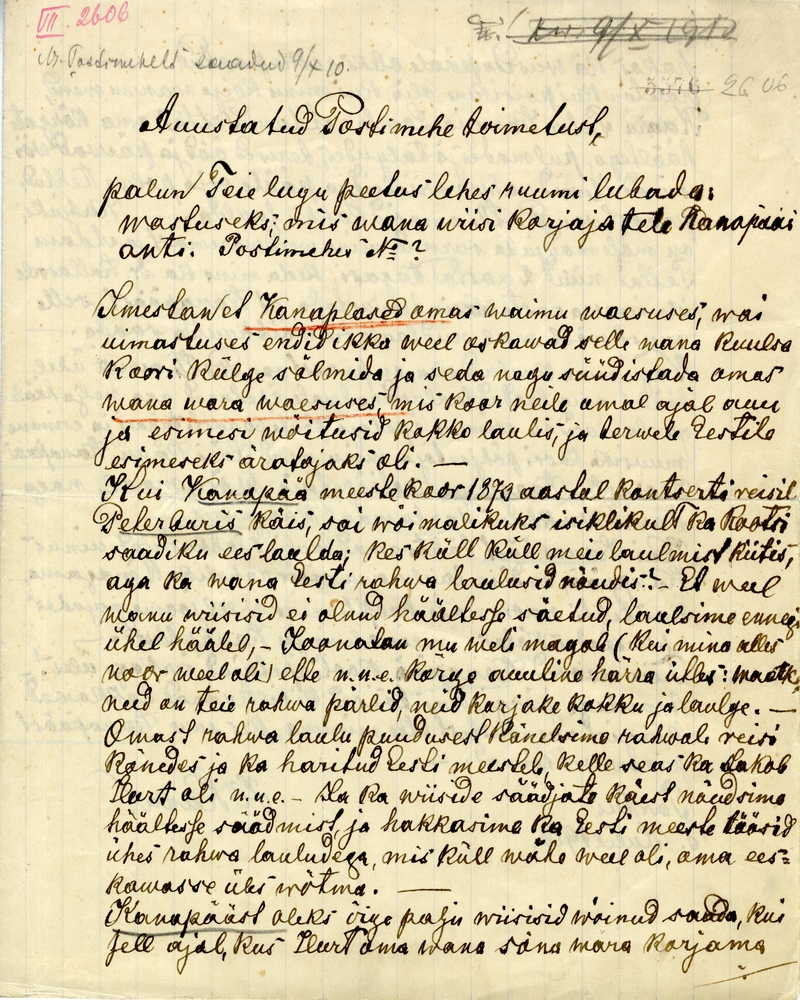 VII. 2606
9/X 1910
Postimehelt saadud 9/X 10.
5576 2606
Auustatud Postimehe toimetust,
palun Teie lugu peetus lehes ruumi lubada:
wastuseks; mis wana wiisi korjajatele Kanapääs
anti. Postimehes № ?
Imestan et Kanaplased omas waimu waesuses, wai
uimastuses endid ikka weel oskawad selle wana kuulsa
Koori külge sõlmida ja seda nagu süüdistada omas
wana wara waesuses, mis koor neile omal ajal auu
ja esimesi wõitusid kokko laulis, ja terwele Eestile
esimeseks äratajaks oli. —
Kui Kanapää meestekoor 1873 aastal kontserti reisil
Peterburis käis, sai wõimalikuks isiklikult ka Rootsi
saadiku ees laulda; kes küll küll meie laulmist kiitis,
aga ka wana Eesti rahwa laulusid nõudis? - Et weel
wanu wiisisid ei olnud häältesse säetud, laulsime ennegi
ühel häälel, - Joonatan mu weli magab (kui mina alles
noor weel oli) ette n.n.e. kõrge auuline härra ütles: waat
need on teie rahwa pärlid, neid korjake kokku ja laulge. —
Omast rahwa laulu puudusest kõnelsime rahwale reisi
kõnedes ja ka haritud Eesti meestele, kelle seas ka Jakob
Hurt oli n.n.e. - Ja ka wiiside säädjate käest nõudsime
häältesse säädmist, ja hakkasime ka Eesti meeste töösid
ühes rahwa lauludega, mis küll wähe weel oli, oma ees=
kawasse üles wõtma. —
Kanapääst oleks õige palju wiisisid wõinud saada, kui
sell ajal, kus Hurt oma wana sõna wara korjama